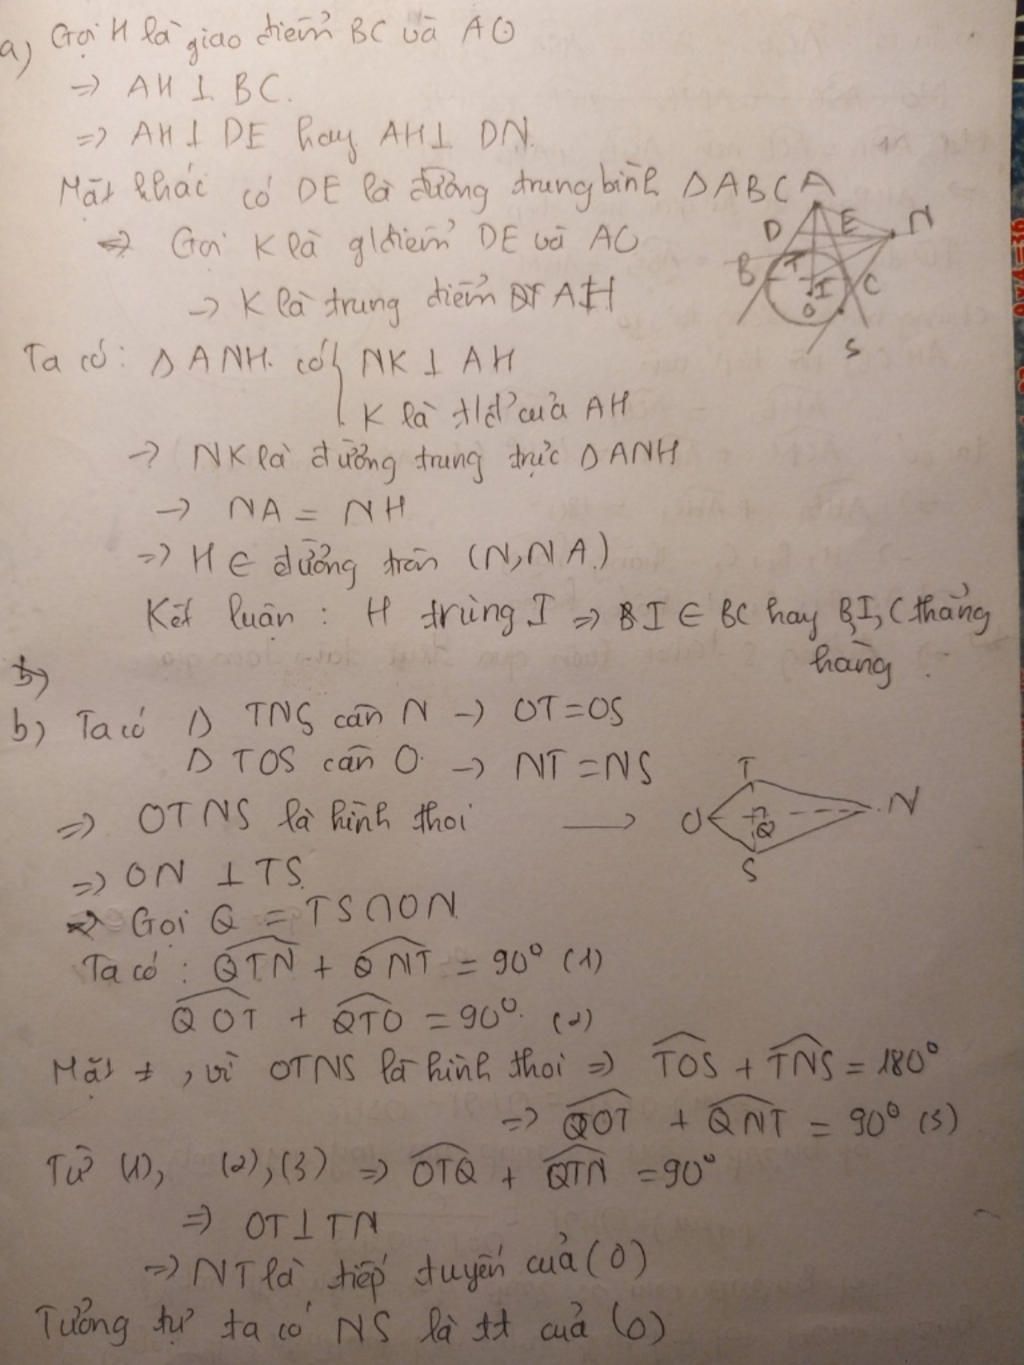 a) Gọi H là giao điểm BC và AO
=> AH ⊥ BC.
=> AH ⊥ DE hay AH ⊥ DN.
Mặt khác có DE là đường trung bình Δ ABC
=> Gọi K là glđiểm DE và AO
-> K là trung điểm AH
A
D
E
N
B
T
I
C
O
S
Ta có: Δ ANH. có { NK ⊥ AH
K là tlđ' của AH
-> NK là đường trung trực Δ ANH
-> NA = NH
=> H ∈ đường tròn (N, NA)
Kết luận : H trùng I => I ∈ BC hay B, I, C thẳng
hàng.
b) Ta có Δ TNS cân N -> OT = OS
Δ TOS cân O. -> NT = NS
=> OTNS là hình thoi ->
T
O
Q
N
S
=> ON ⊥ TS.
=> Gọi Q = TS ∩ ON
Ta có : QTN + QNT = 90° (1)
QOT + QTO = 90° (2)
Mặt ≠, vì OTNS là hình thoi => TOS + TNS = 180°
=> QOT + QNT = 90° (3)
Từ (1), (2), (3) => OTQ + QTN = 90°
=> OT ⊥ TN
=> NT là tiếp tuyến của (O)
Tương tự ta có NS là tt của (O)